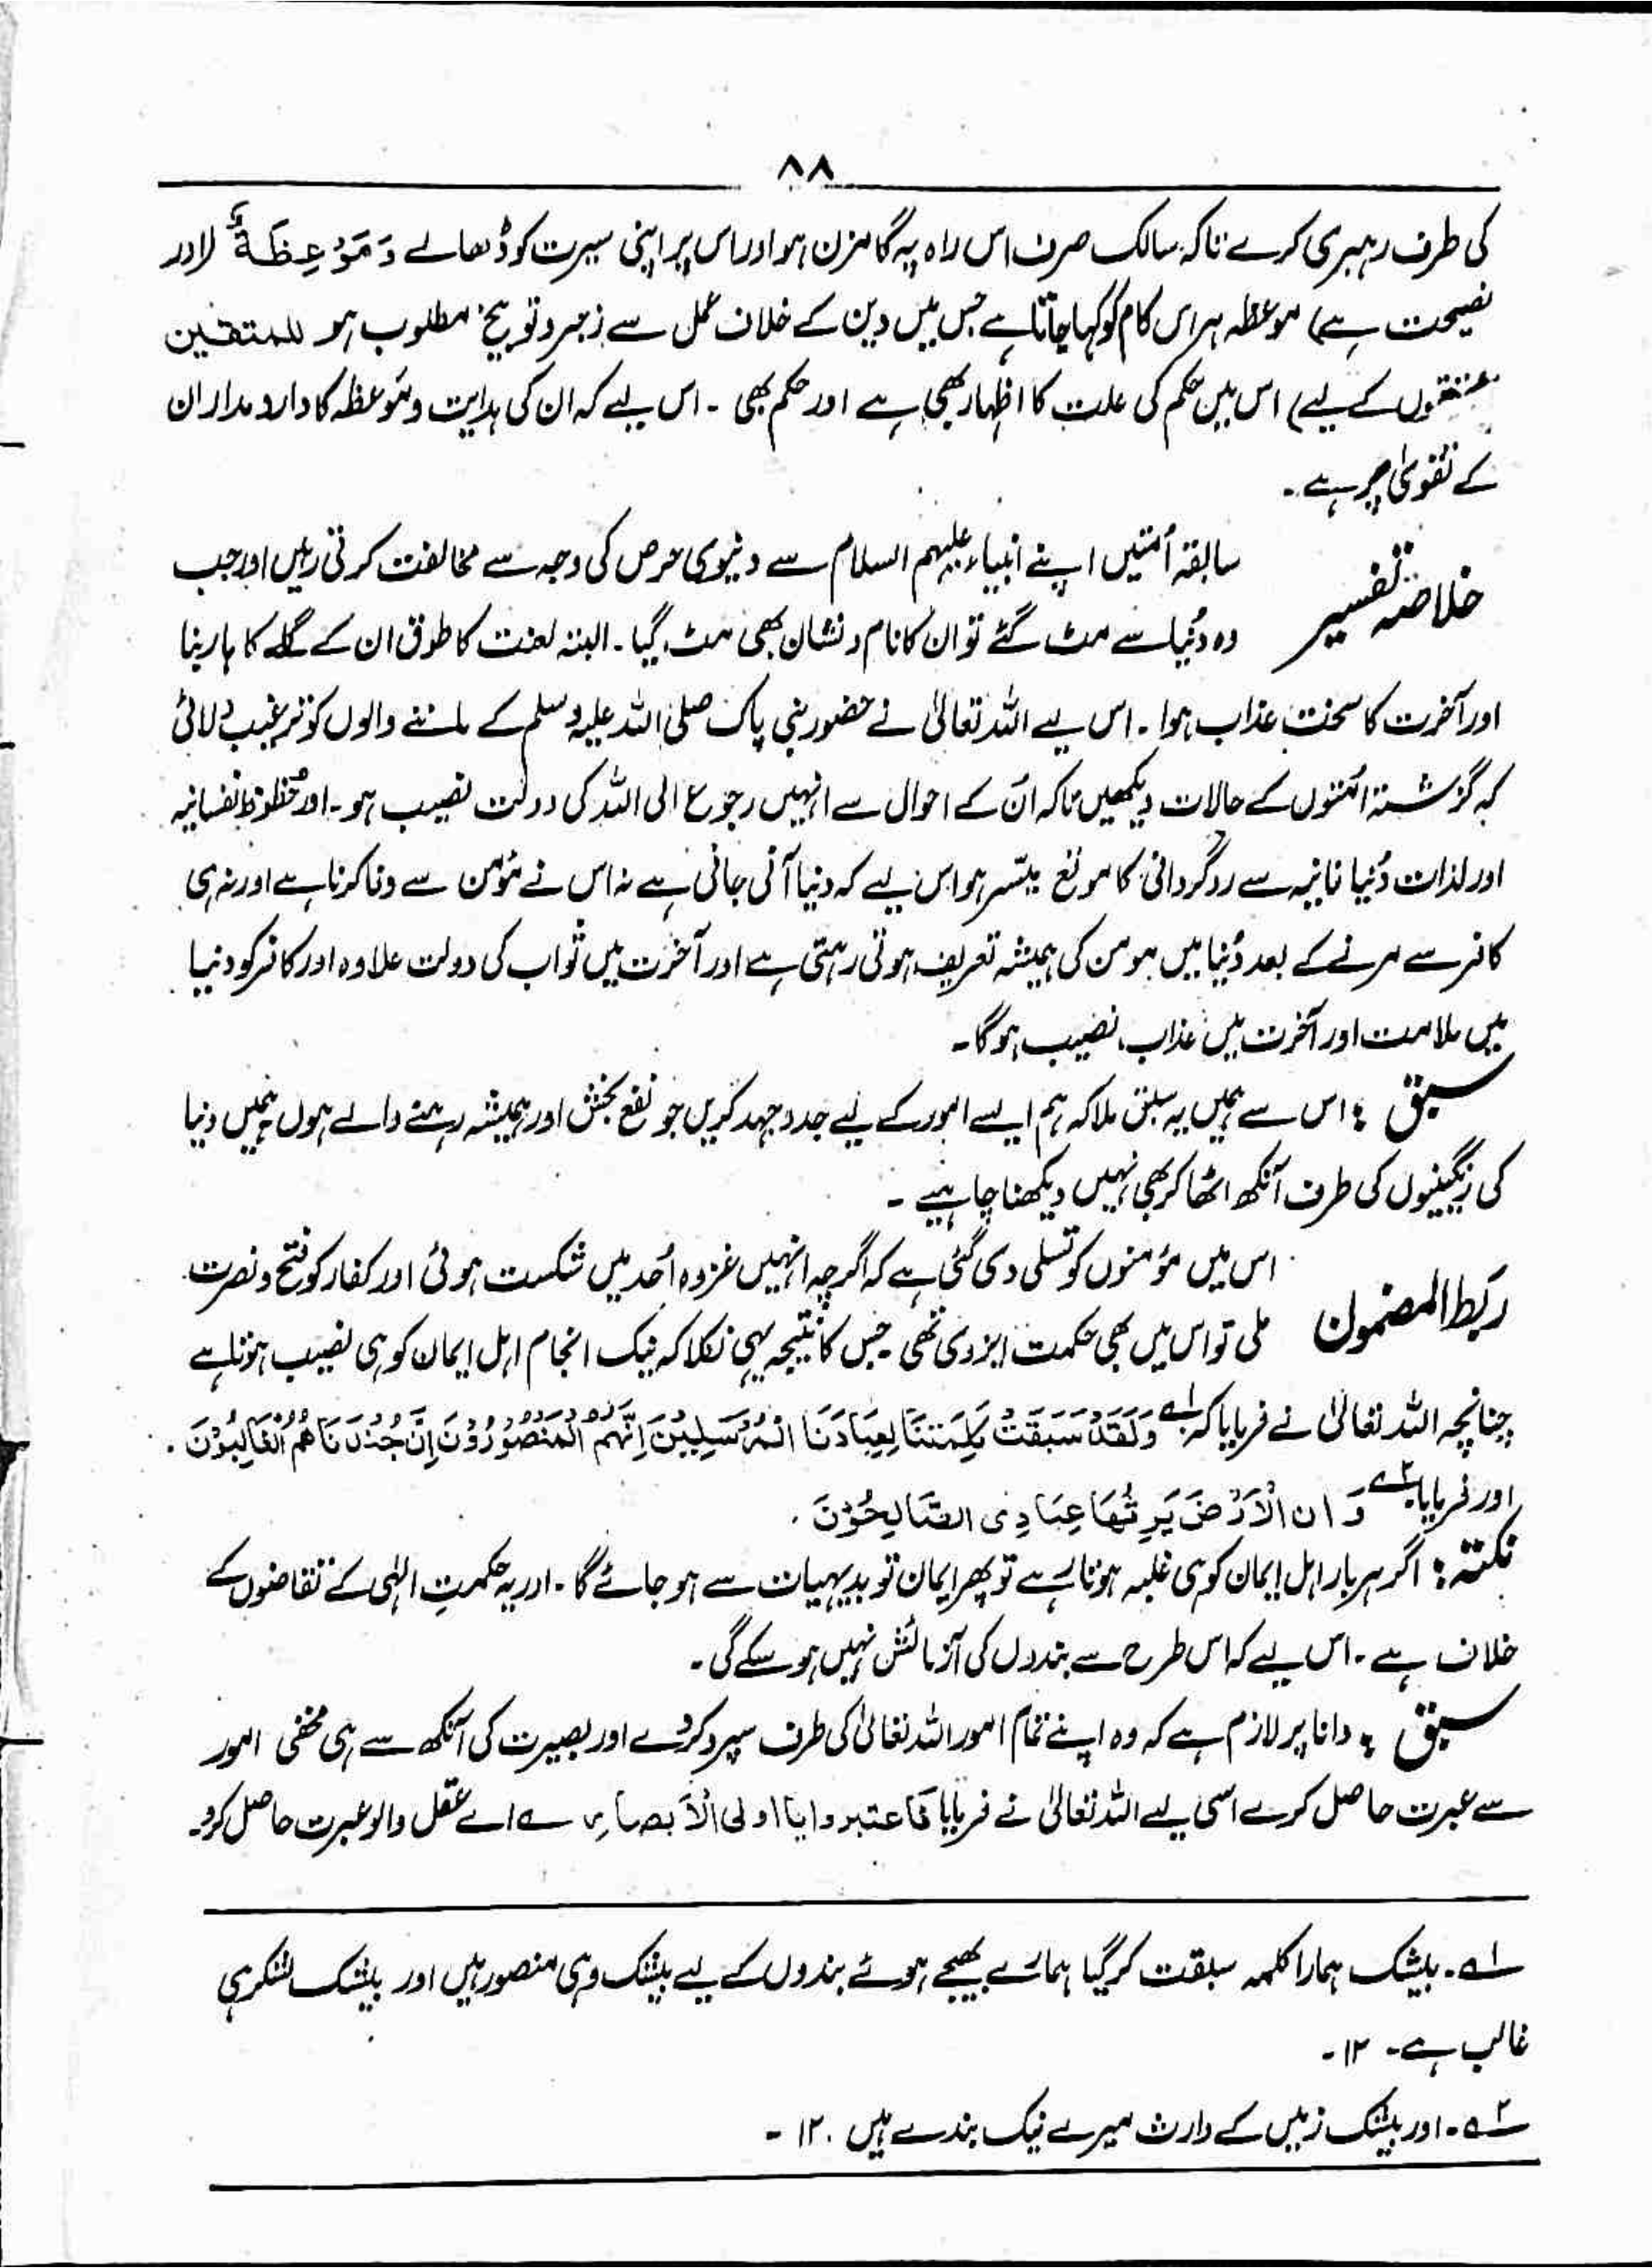 ۸۸
کی طرف رہبری کرے تاکہ سالک صرف اس راہ پہ گامزن ہو اور اس پر اپنی سیرت کو ڈھالے وَمَوْعِظَۃٌ (اور
نصیحت ہے) موعظہ ہر اس کام کو کہا جاتا ہے جس میں دین کے خلاف عمل سے زجر و توبیخ مطلوب ہو للمتقین
متقیوں کے لیے) اس میں حکم کی علت کا اظہار بھی ہے اور حکم بھی ۔ اس لیے کہ ان کی ہدایت و موعظہ کا دارومدار ان
کے تقویٰ پر ہے۔
خلاصہ تفسیر سابقہ اُمتیں اپنے انبیاء علیہم السلام سے دنیوی حرص کی وجہ سے مخالفت کرتی رہیں اور جب
وہ دُنیا سے مٹ گئے تو ان کا نام و نشان بھی مٹ گیا ۔ البتہ لعنت کا طوق ان کے گلے کا ہار بنا
اور آخرت کا سخت عذاب ہوا ۔ اس لیے اللہ تعالیٰ نے حضور نبی پاک صلی اللہ علیہ وسلم کے ماننے والوں کو ترغیب دلائی
کہ گزشتہ اُمتوں کے حالات دیکھیں تاکہ اُن کے احوال سے انہیں رجوع الی اللہ کی دولت نصیب ہو ۔ اور حُظوظ نفسانیہ
اور لذات دُنیا فانیہ سے روگردانی کا موقع میسّر ہو اس لیے کہ دنیا آنی جانی ہے نہ اس نے مؤمن سے وفا کرنا ہے اور نہ ہی
کافر سے مرنے کے بعد دُنیا میں مومن کی ہمیشہ تعریف ہوتی رہتی ہے اور آخرت میں ثواب کی دولت علاوہ اور کافر کو دنیا
میں ملامت اور آخرت میں عذاب نصیب ہوگا ۔
سبق : اس سے ہمیں یہ سبق ملا کہ ہم ایسے امور کے لیے جدوجہد کریں جو نفع بخش اور ہمیشہ رہنے والے ہوں ہمیں دنیا
کی رنگینیوں کی طرف آنکھ اٹھا کر بھی نہیں دیکھنا چاہیے ۔
ربط المضمون اس میں مؤمنوں کو تسلی دی گئی ہے کہ اگرچہ انہیں غزوہ اُحد میں شکست ہوئی اور کفار کو فتح و نصرت
ملی تو اس میں بھی حکمت ایزدی تھی جس کا نتیجہ یہی نکلا کہ نیک انجام اہل ایمان کو ہی نصیب ہوتا ہے
چنانچہ اللہ تعالیٰ نے فرمایا کہ ۱ وَلَقَدْ سَبَقَتْ کَلِمَتُنَا لِعِبَادِنَا الْمُرْسَلِیْنَ اِنَّھُمْ لَھُمُ الْمَنْصُوْرُوْنَ اِنَّ جُنْدَنَا ھُمُ الْغَالِبُوْنَ ۔
اور فرمایا ۲ وَ ان الْاَرْضَ یَرِثُھَا عِبَادِی الصَّالِحُوْنَ ۔
نکتہ : اگر ہر بار اہل ایمان کو ہی غلبہ ہوتا رہے تو پھر ایمان تو بدیہیات سے ہو جائے گا ۔ اور یہ حکمتِ الٰہی کے تقاضوں کے
خلاف ہے ۔ اس لیے کہ اس طرح سے بندوں کی آزمائش نہیں ہو سکے گی ۔
سبق : دانا پر لازم ہے کہ وہ اپنے تمام امور اللہ تعالیٰ کی طرف سپرد کردے اور بصیرت کی آنکھ سے ہی مخفی امور
سے عبرت حاصل کرے اسی لیے اللہ تعالیٰ نے فرمایا فَاعتبروا یا اولی الْاَبصارِ اے عقل والو عبرت حاصل کرو۔
۱ ۔ بیشک ہمارا کلمہ سبقت کر گیا ہمارے بھیجے ہوئے بندوں کے لیے بیشک وہی منصور ہیں اور بیشک لشکر ہی
غالب ہے ۔ ۱۲ ۔
۲ ۔ اور بیشک زمیں کے وارث میرے نیک بندے ہیں ۔ ۱۲ ۔